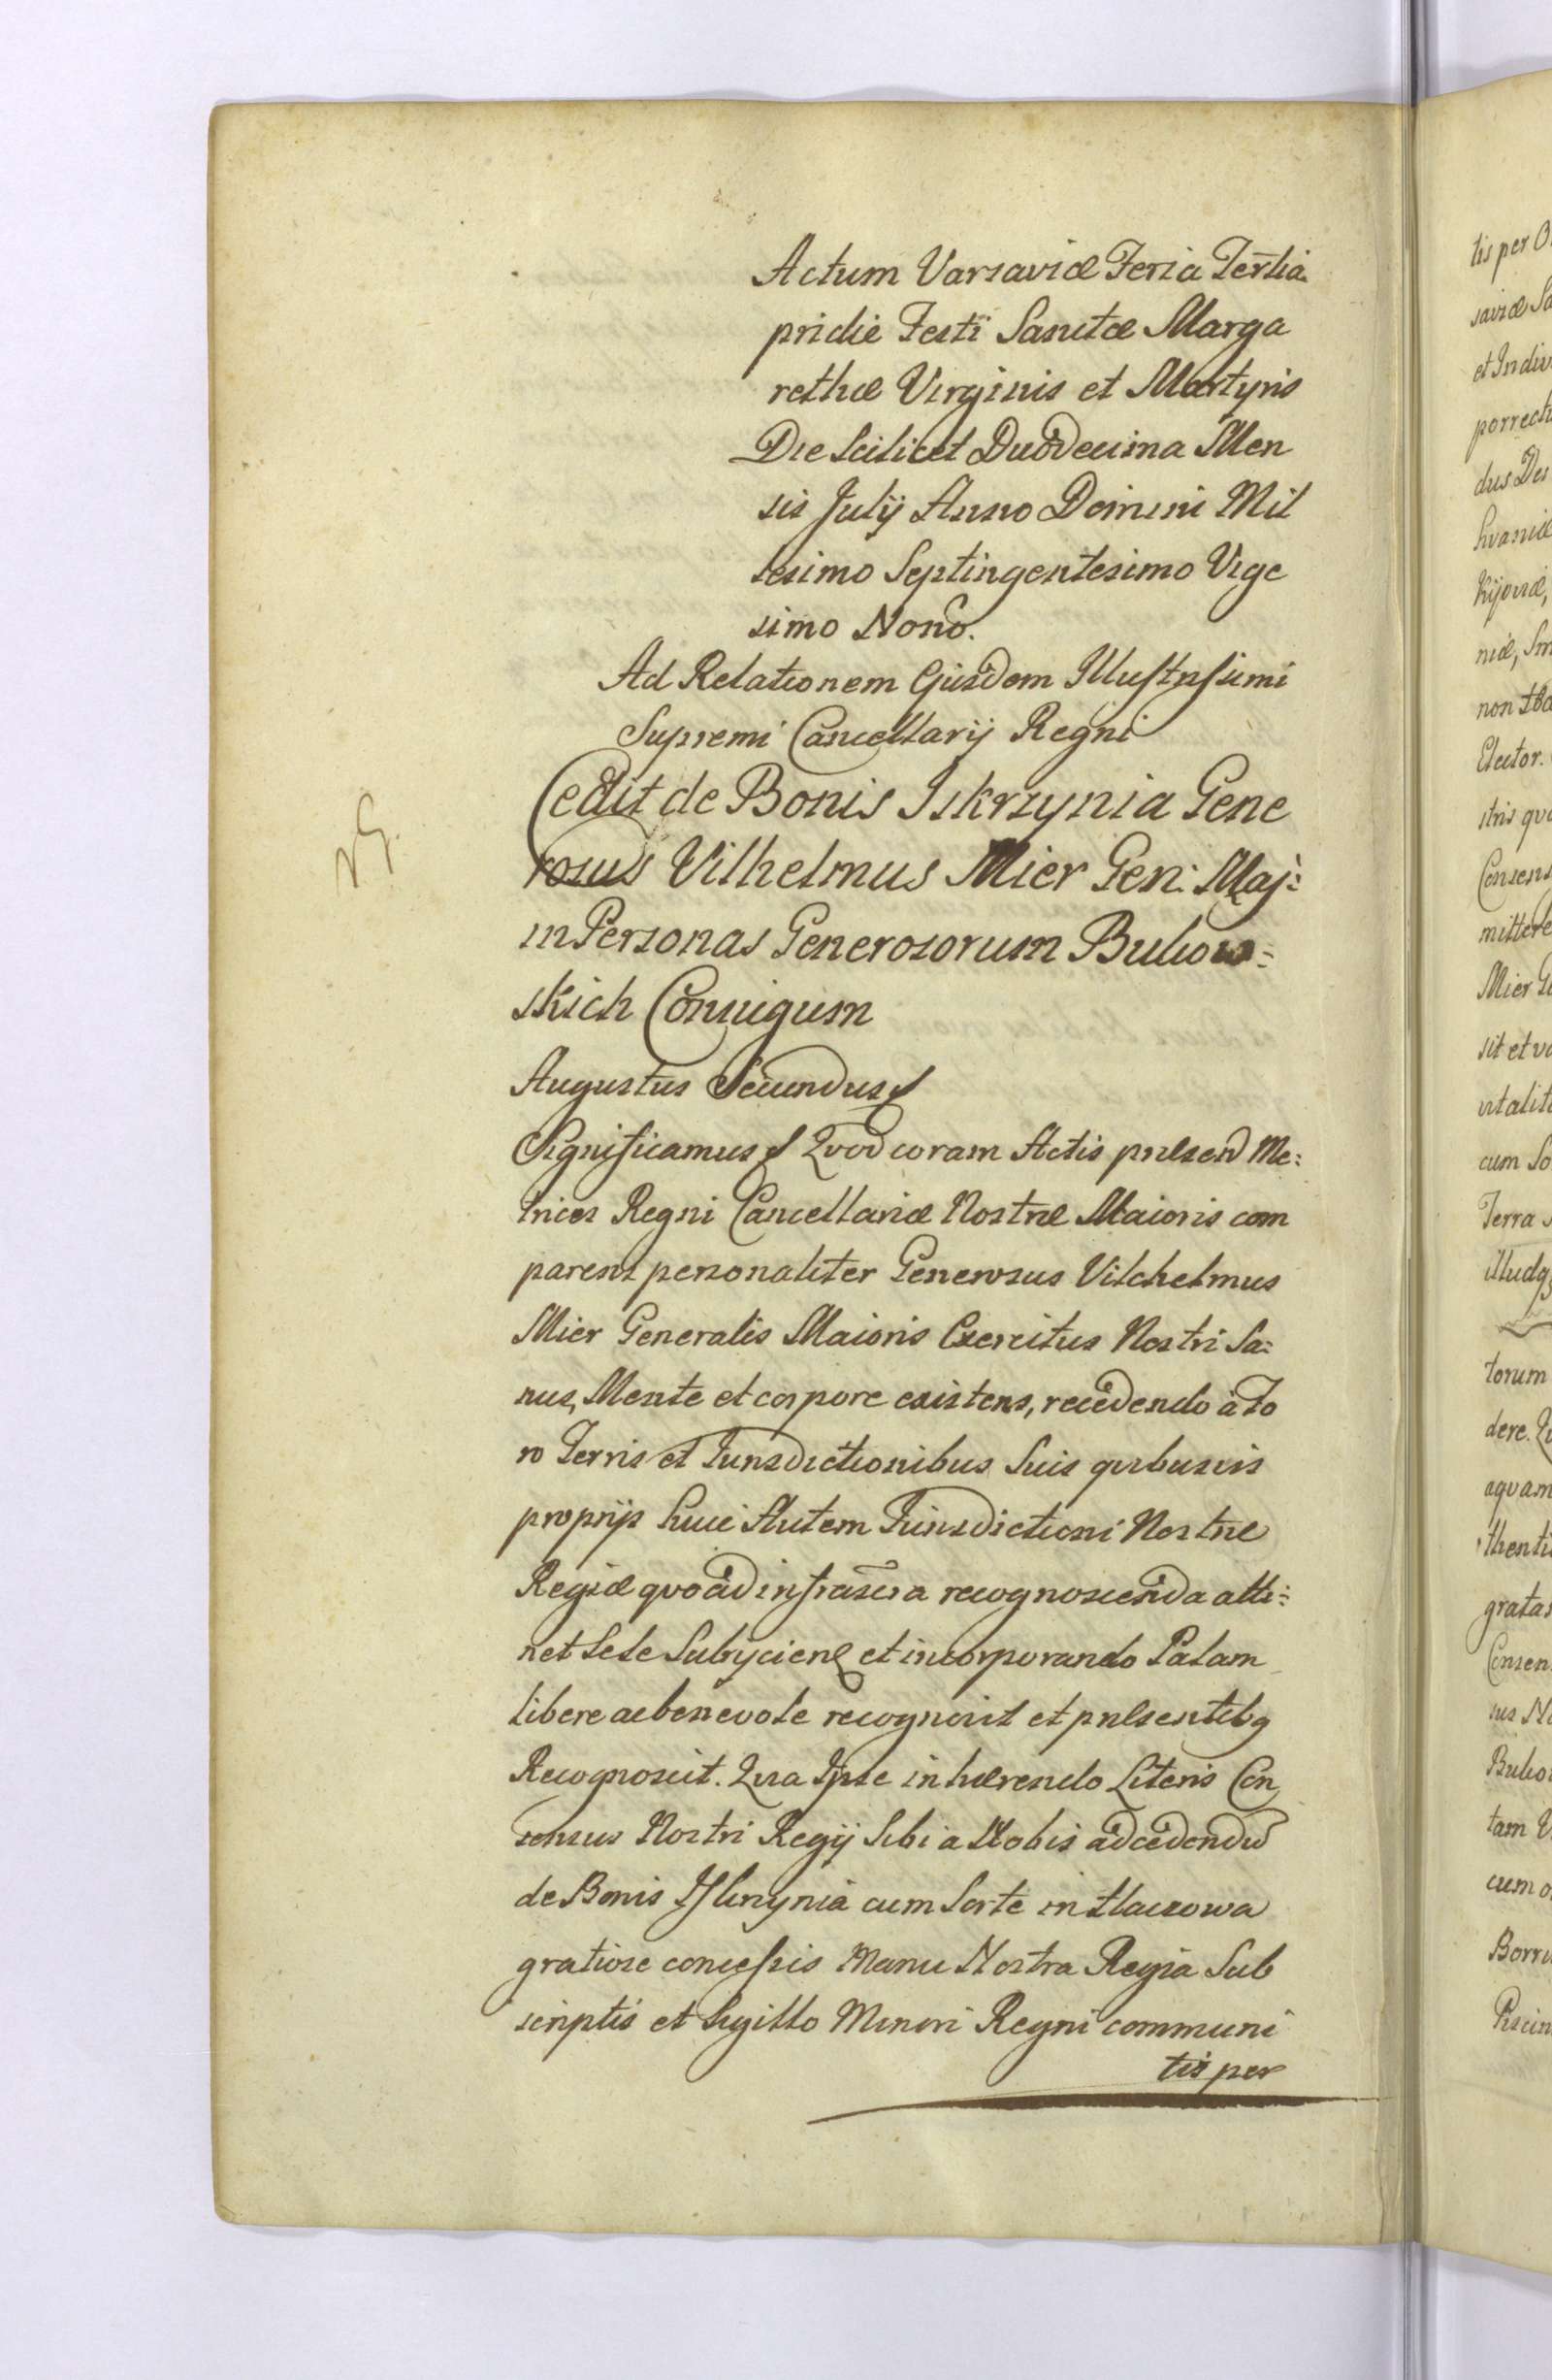 Actum Varsaviæ Feria Tertia
pridie Festi Sanctæ Marga
rethæ Virginis et Martyris
Die Scilicet Duodecima Men
sis Julij Anno Domini Mil
lesimo Septingentesimo Vige
simo Nono.
Ad Relationem Ejusdem Illustrissimi
Supremi Cancellarij Regni
Cedit de Bonis Iskrzynia Gene
rosus Vilhelmus Mier Gen: Maj:
in Personas Generosorum Bukow=
skich Conjugum
Augustus Secundus
Significamus Quod coram Actis præsend Me:
trices Regni Cancellariæ Nostræ Maioris com
parens personaliter Generosus Vilchelmus
Mier Generalis Maioris Exercitus Nostri Sa:
nus, Mente et corpore existens, recedendo à Fo
ro Terris et Jurisdictionibus Suis quibusvis
proprijs huic Autem Jurisdictioni Nostræ
Regiæ quo ad infrascra recognoscenda atti:
net Sese Subijcien et incorporando Palam
libere ac benevole recognovit et præsentibq
Recognoscit. Quia Ipse inhærendo Literis Con
sensus Nostri Regij Sibi a Nobis ad cedendū
de Bonis Iskrzynia cum Sorte in
gratiose concessis Manu Nostra Regia Sub
scriptis et Sigillo Minori Regni communi
tis per
tis per
saviæ
et Indiv
porrect
dus
hvaniæ
Kijoviæ,
niæ, Sm
non
Elector.
stris qu
Consens
mittere
Mier
sit et v
vitalit
cum So
Terra
illudq
torum
dere.
aqvam
thenti
gratas
Consen
tam
cum o
Piscin